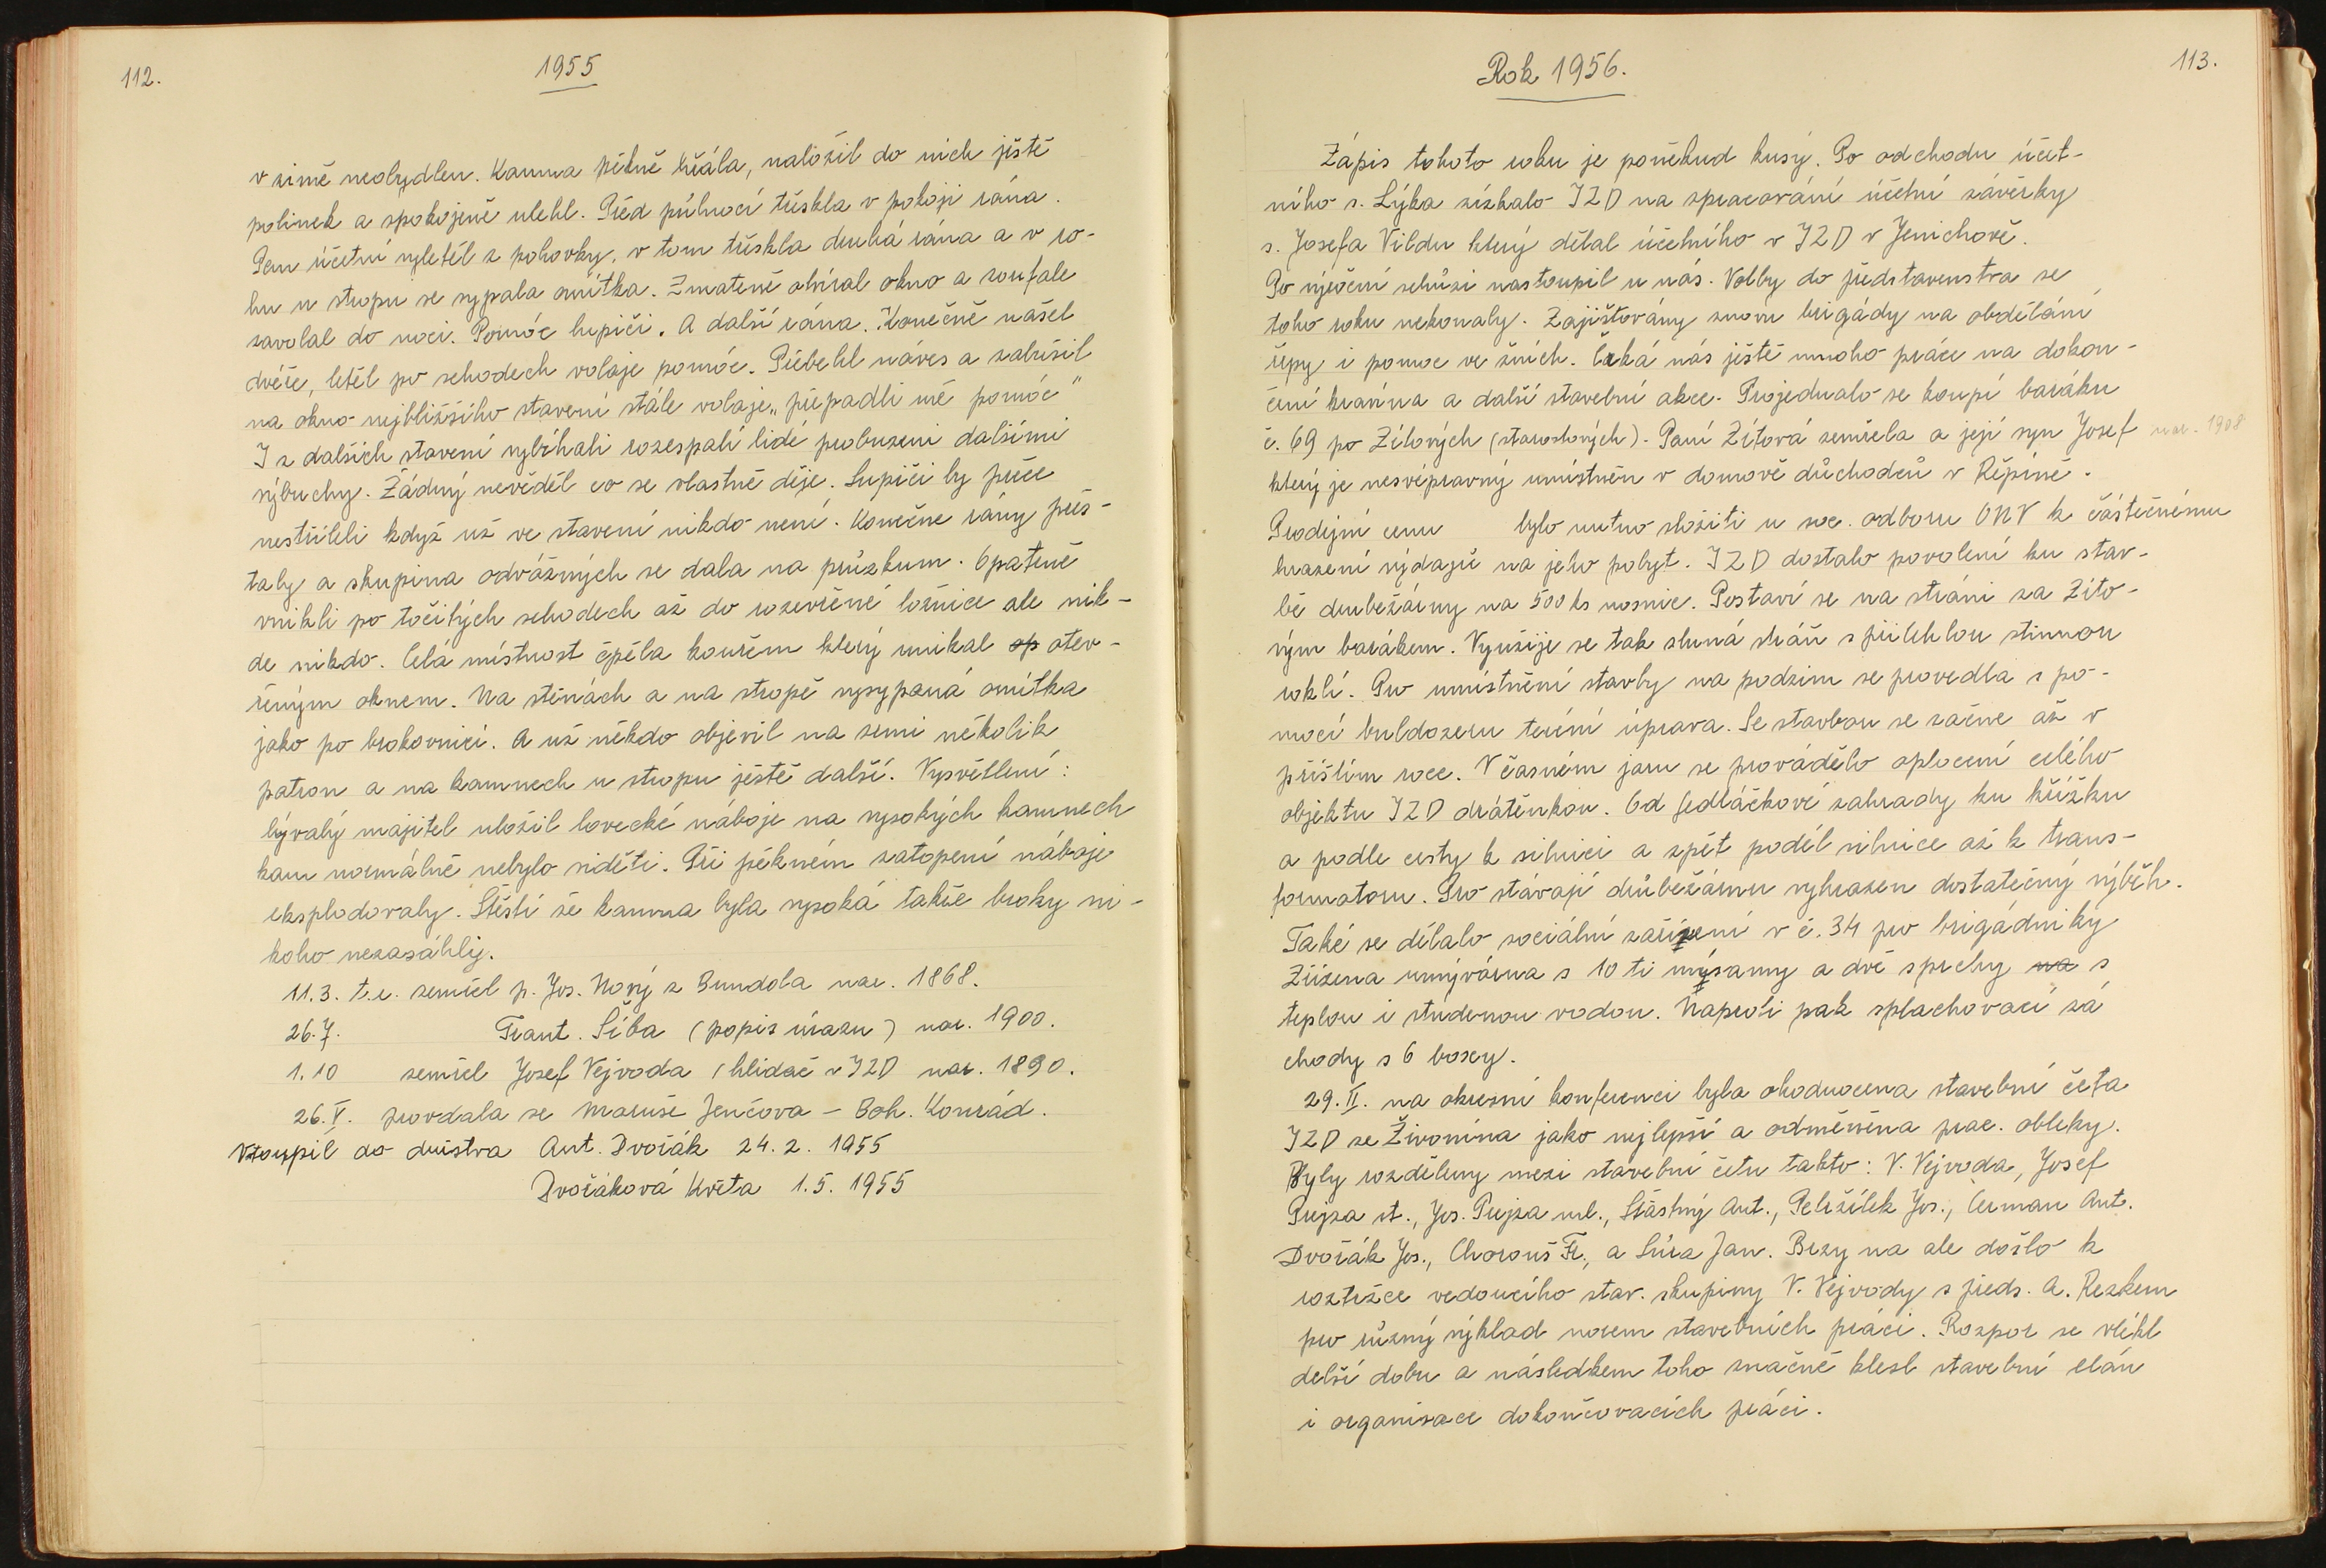 112.
1955
v zimě neobydlen. Kamna pěkně hřála, naložil do nich ještě
polínek a spokojeně ulehl. Před půlnocí třeskla v pokoji rána.
Pan účetní vyletěl z pohovky, v tom třeskla druhá rána a v ro-
hu u stropu se sypala omítka. Zmateně otvíral okno a zoufale
zavolal do noci. Pomóc lupiči. A další rána. Konečně našel
dvéře, letěl po schodech volaje pomóc. Přeběhl náves a zabušil
na okno nejbližšího stavení stále volaje „přepadli mě pomóc"
I z dalších stavení vybíhali rozespalí lidé probuzeni dalšími
výbuchy. Žádný nevěděl co se vlastně děje. Lupiči by přece
nestříleli když už ve stavení nikdo není. Konečne rány přes-
taly a skupina odvážných se dala na průzkum. Opatrně
vnikli po točitých schodech až do rozevřené ložnice ale nik-
de nikdo. Celá místnost čpěla kouřem který unikal op otev-
řeným oknem. Na stěnách a na stropě vysypaná omítka
jako po brokovnici. A už někdo objevil na zemi několik
patron a na kamnech u stropu ještě další. Vysvětlení:
bývalý majitel uložil lovecké náboje na vysokých kamnech
kam normálně nebylo viděti. Při pěkném zatopení náboje
eksplodovaly. Štěstí že kamna byla vysoká takže broky ni-
koho nezasáhly.
11.3. t.r. zemřel p. Jos. Nový z Bundola nar. 1868.
26.7. Frant. Šíba (popis úrazu) nar. 1900.
1.10 zemřel Josef Vejvoda (hlídač v JZD nar. 1890.
26.V. provdala se Maruše Jenčova - Boh. Konrád.
Vstoupil do družstva Ant. Dvořák 24.2. 1955
Dvořáková Květa 1.5. 1955
Rok 1956.
113.
Zápis tohoto roku je poněkud kusý. Po odchodu účet-
ního s. Lýka získalo JZD na zpracování účetní závěrky
s. Josefa Vildu který dělal účetního v JZD v Jenichově.
Po výroční schůzi nastoupil u nás. Volby do představenstva se
toho roku nekonaly. Zajišťovány znovu brigády na obdělání
řepy i pomoc ve žních. Čeká nás ještě mnoho práce na dokon-
čení kravína a další stavební akce. Projednalo se koupí baráku
č. 69 po Zítových (starostových). Paní Zítová zemřela a její syn Josef nar. 1908
který je nesvépravný umístněn v domově důchodců v Řepíně.
Prodejní cenu bylo nutno složiti u soc. odboru ONV k částečnému
hrazení výdajů na jeho pobyt. JZD dostalo povolení ku stav-
bě drubežárny na 500 ks nosnic. Postaví se na stráni za Zíto-
vým barákem. Využije se tak sluná stráň s přilehlou stinnou
roklí. Pro umístnění stavby na podzim se provedla s po-
mocí buldozeru terení úprava. Se stavbou se začne až v
příštím roce. V časném jaru se provádělo oplocení celého
objektu JZD drátěnkou. Od Sedláčkové zahrady ku křížku
a podle cesty k silnici a zpět podél silnice až k trans-
formatoru. Pro stávají drůbežárnu vyhrazen dostatečný výběh.
Také se dělalo sociální zařízení v č. 34 pro brigádníky
Zřízena umývárna s 10 ti mýsamy a dvě sprchy na s
teplou i studenou vodou. Naproti pak splachovací zá
chody s 6 boxy.
29.II. na okresní konferenci byla ohodnocena stavební četa
JZD ze Živonína jako nejlepší a odměněna prac. obleky.
Byly rozděleny mezi stavební četu takto: V. Vejvoda, Josef
Prejza st., Jos. Prejza ml., Šťástný Ant., Peližílek Jos., Čerman Ant.
Dvořák Jos., Chorouš Fr., a Šúra Jan. Brzy na ale došlo k
roztržce vedoucího stav. skupiny V. Vejvody s před. A. Rezkem
pro různý výklad norem stavebních prácí. Rozpor se vlékl
delší dobu a následkem toho značně klesl stavební elán
i organisace dokončovacích prácí.